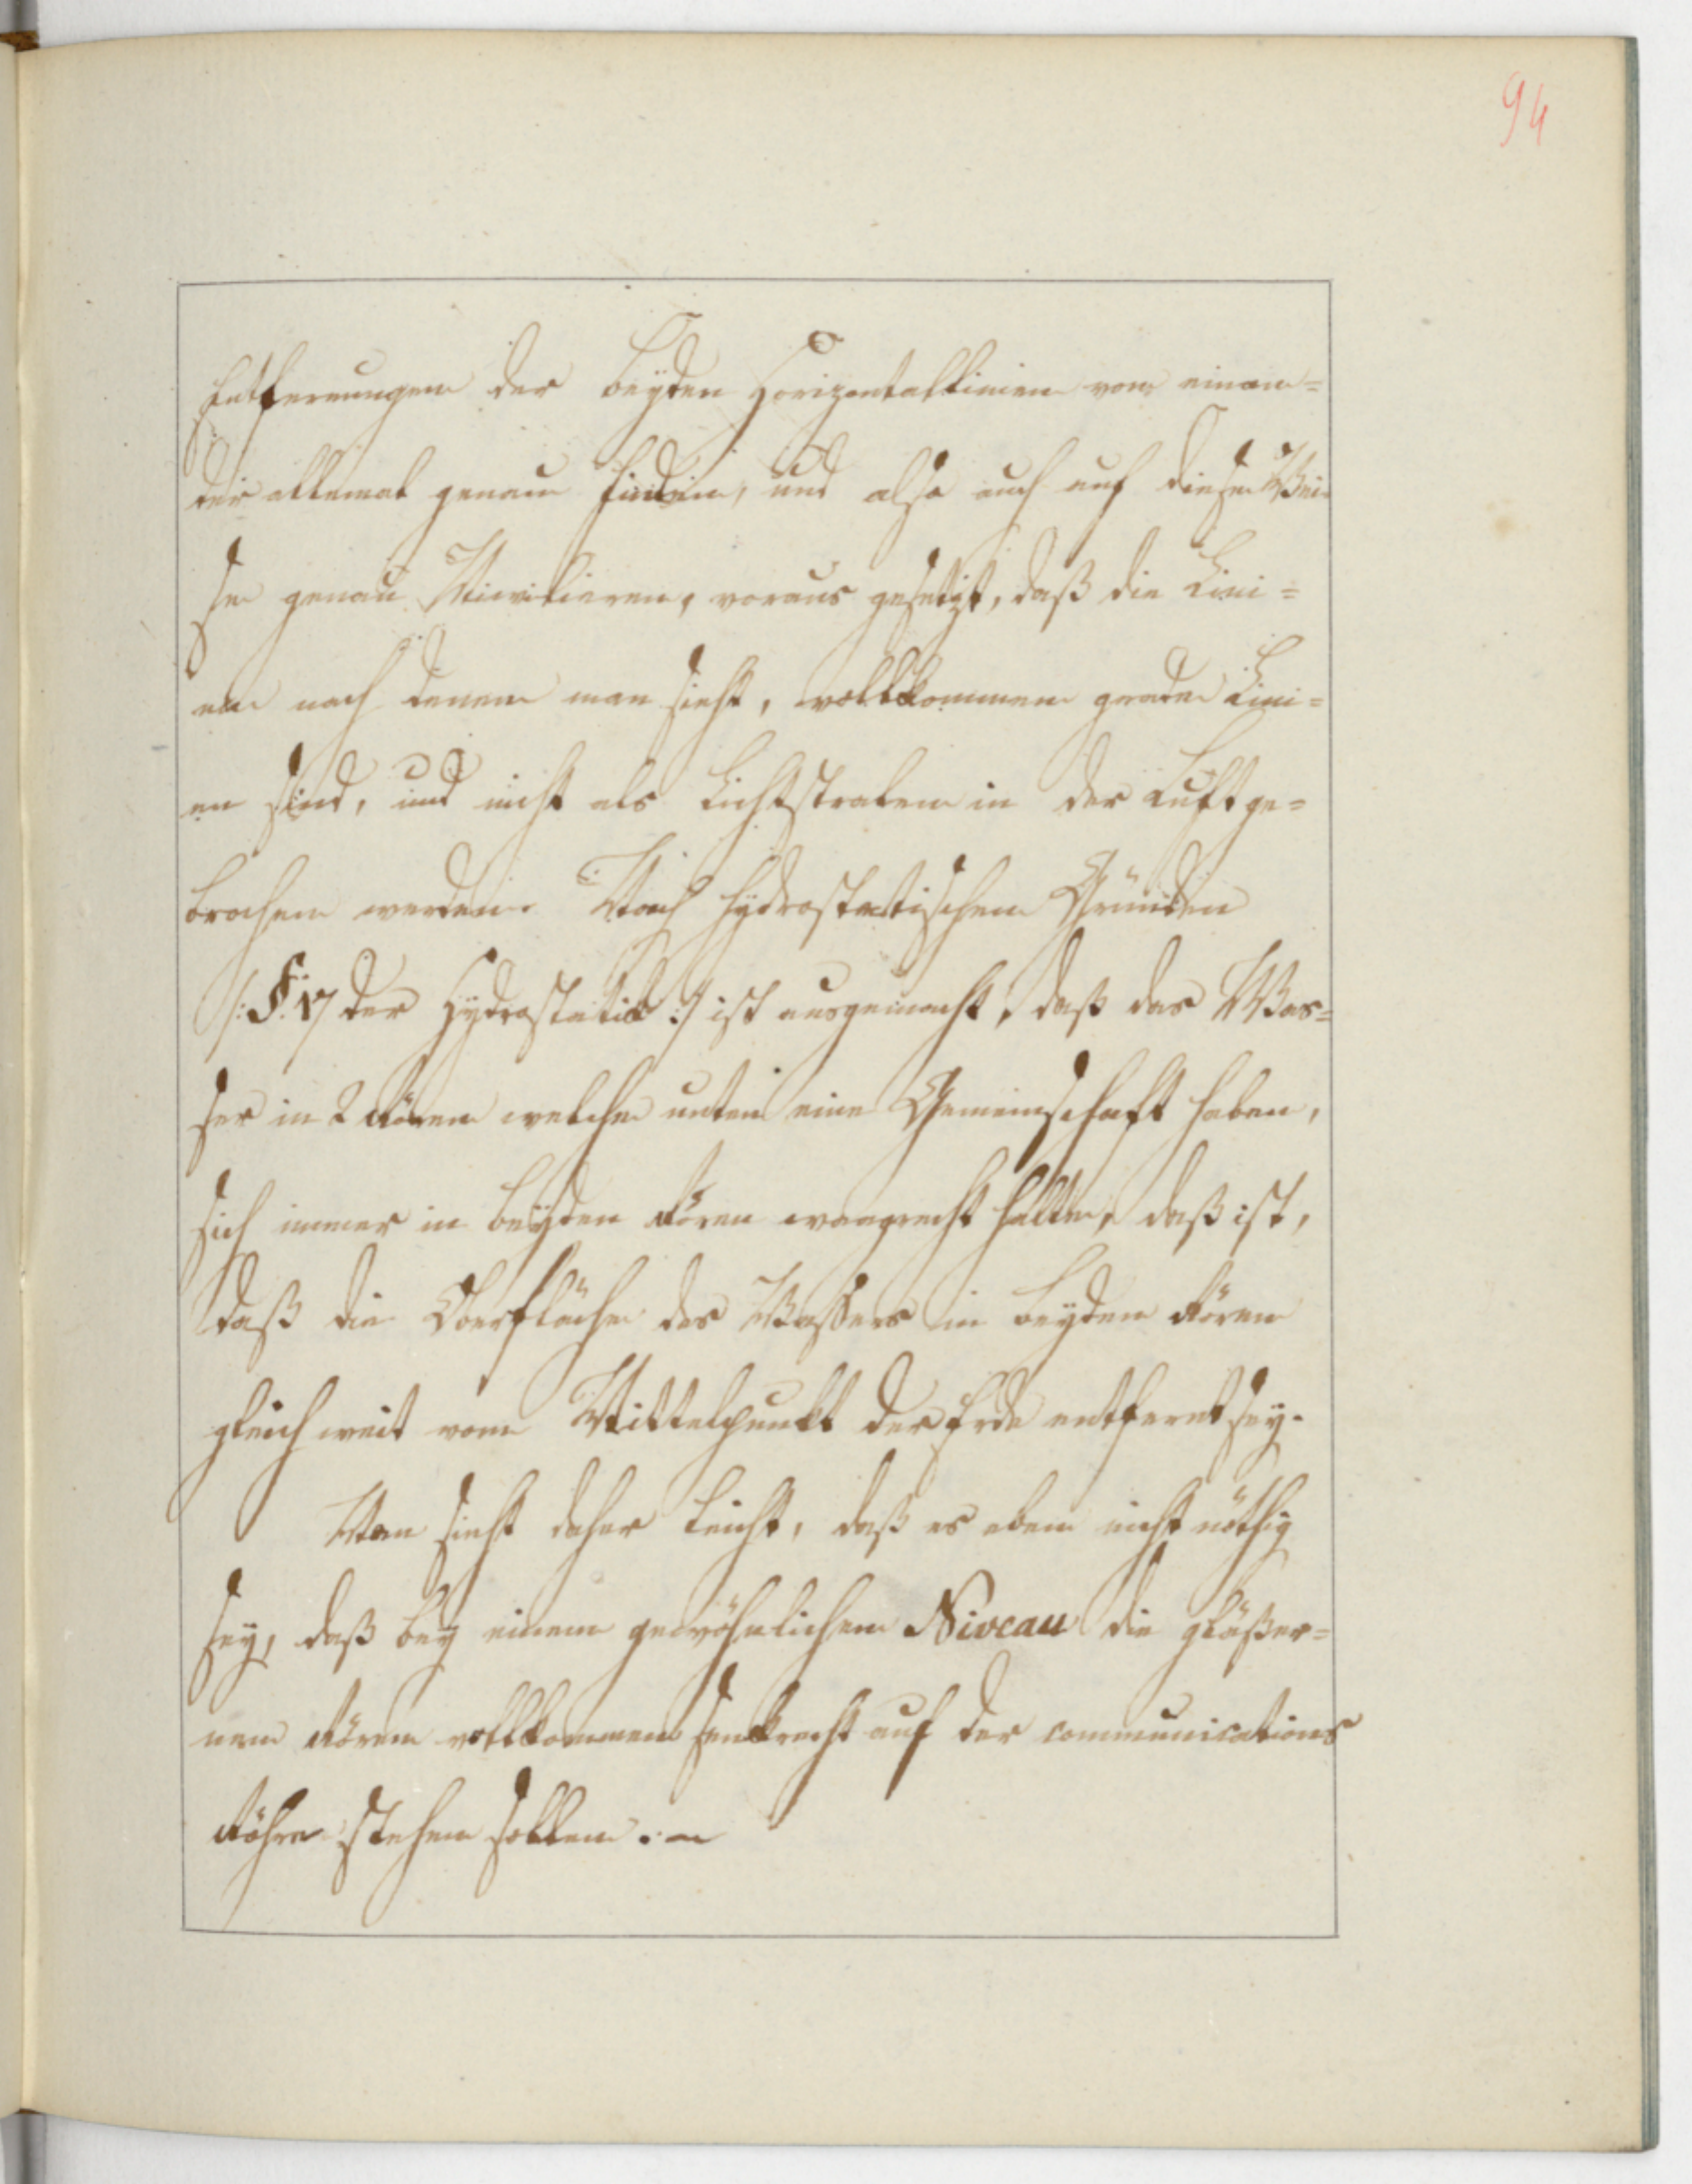 94
Entfernungen der beyden Horizontallinien von einan=
der allemal genau finden, und also auch auf diese Wei
se genau Nivelieren, voraus gesetzt, daß die Lini=
en nach denen man sieht, vollkommen grade Lini=
en sind, und nicht als Lichtstralen in der Luft ge=
brochen werden. Nach hydrostatischen Gründen
/:§. 17 der Hydrostatik:/ ist ausgemacht, daß das Was=
ser in 2 Rören welche unten eine Gemeinschaft haben,
sich immer in beyden Rören waagrecht halte, daß ist,
daß die Oberfläche des Waßers in beyden Rören
gleich weit vom Mittelpunkt der Erde entfernt sey.
Man sieht daher leicht, daß es eben nicht nöthig
sey, daß bey einem gewöhnlichen Niveau die gläßer=
nen Rören vollkommen senkrecht auf der communications
Röhre stehen sollen. ~